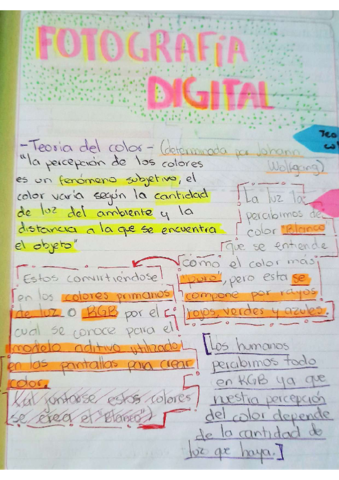 FOTOGRAFÍA
DIGITAL
-Teoría del color- (determinada por Johann
Wolfgang)
"la percepción de los colores
es un fenómeno subjetivo, el
color varía según la cantidad
de luz del ambiente y la
distancia a la que se encuentra
el objeto"
La luz la
percibimos de
color "Blanco"
que se entiende
cómo el color más
"puro", pero esta se
compone por rayos
rojos, verdes y azules.
Estos convirtiéndose
en los colores primarios
de luz o RGB por el
cual se conoce para el
modelo aditivo utilizado
en las pantallas para crear
color.
(al juntarse estos colores
se crea el "Blanco")
[Los humanos
percibimos todo
en RGB ya que
nuestra percepción
del color depende
de la cantidad de
luz que haya.]